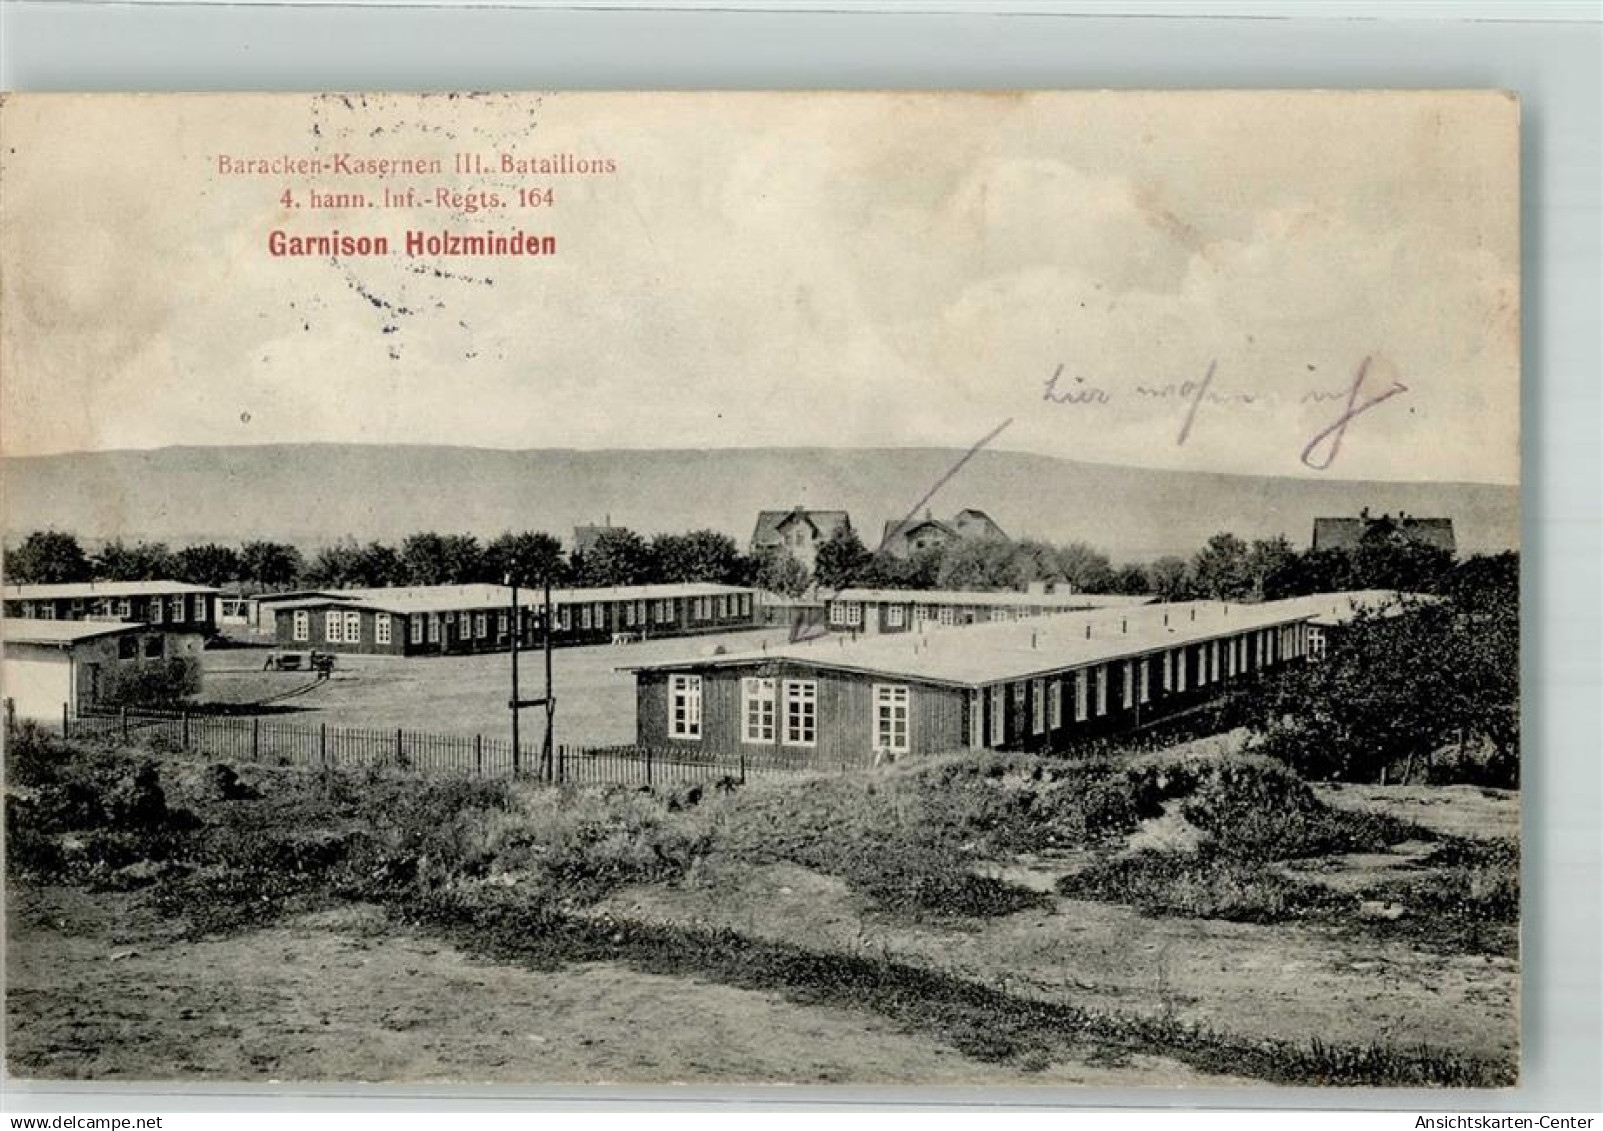 Baracken-Kasernen III. Bataillons
4. hann. Inf.-Regts. 164
Garnison Holzminden
hier wohne ich
www.delcampe.net
Ansichtskarten-Center